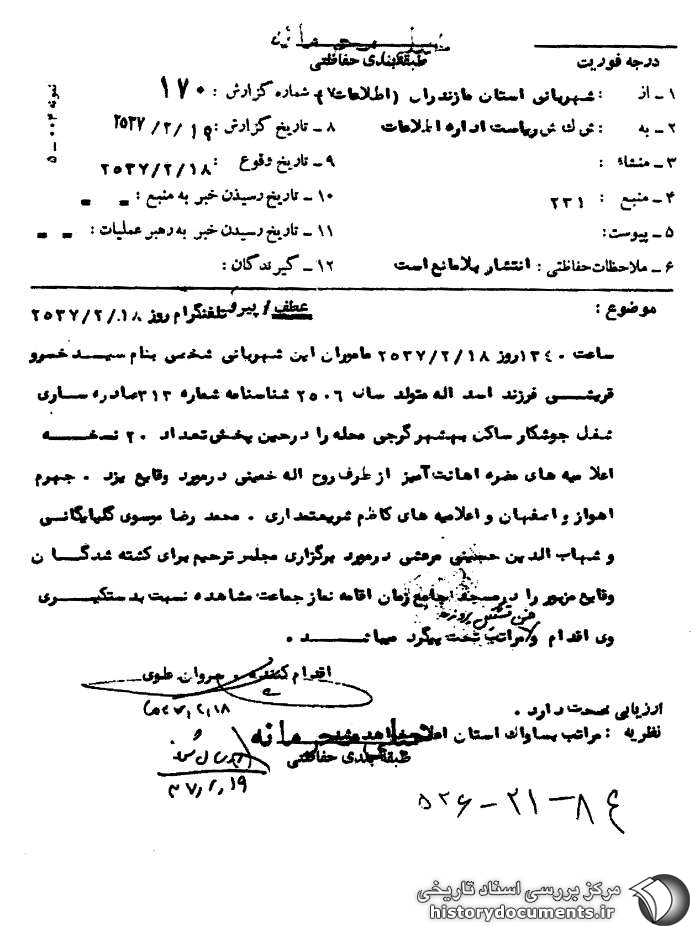 خیلی محرمانه
درجه فوریت
طبقه‌بندی حفاظتی
نمونه ۰۰۴ - ۵
۱ـ از : شهربانی استان مازندران (اطلاعات) ۷ـ شماره گزارش : ۱۷۰
۲ـ به : ش ک ش ریاست اداره اطلاعات ۸ ـ تاریخ گزارش : ۲۵۳۷/۲/۱۹
۳ـ منشاء : ۹ ـ تاریخ وقوع : ۲۵۳۷/۲/۱۸
۴ـ منبع : ۲۳۱ ۱۰ ـ تاریخ رسیذن خبر به منبع : - -
۵ـ پیوست: ۱۱ ـ تاریخ رسیدن خبر به رهبر عملیات : - -
۶ـ ملاحظات حفاظتی : انتشار بلامانع است ۱۲ ـ گیرندگان :
موضوع : عطف / پیرو تلفنگرام روز ۲۵۳۷/۲/۱۸
ساعت ۱۳٤۰ روز ۲۵۳۷/۲/۱۸ ماموران این شهربانی شخصی بنام سید خسرو
قریشی فرزند اسد اله متولد سال ۲۵۰۶ شناسنامه شماره ۳۱۳ صادره ساری
شغل جوشکار ساکن بهشهر گرجی محله را درحین پخش تعداد ۲۰ نسخه
اعلامیه های مضره اهانت آمیز از طرف روح اله خمینی درمورد وقایع یزد . جهرم
اهواز و اصفهان و اعلامیه های کاظم شریعتمداری . محمد رضا موسوی گلپایگانی
و شهاب الدین حسینی مرعشی درمورد برگزاری مجلس ترحیم برای کشته شدگان
وقایع مزبور را درمسجد جامع زمان اقامه نماز جماعت مشاهده نسبت بدستگیری
وی اقدام و مراتب تحت پیگرد میباشد .
اقدام کننده . سروان علوی
۳۷/۲/۱۸
ارزیابی صحت دارد .
نظریه : مراتب بساواک استان اعلام خواهد شد
خیلی محرمانه
طبقه‌بندی حفاظتی
۳۷/۲/۱۹
۵۲۶-۲۱-۸٤
مرکز بررسی اسناد تاریخی
historydocuments.ir